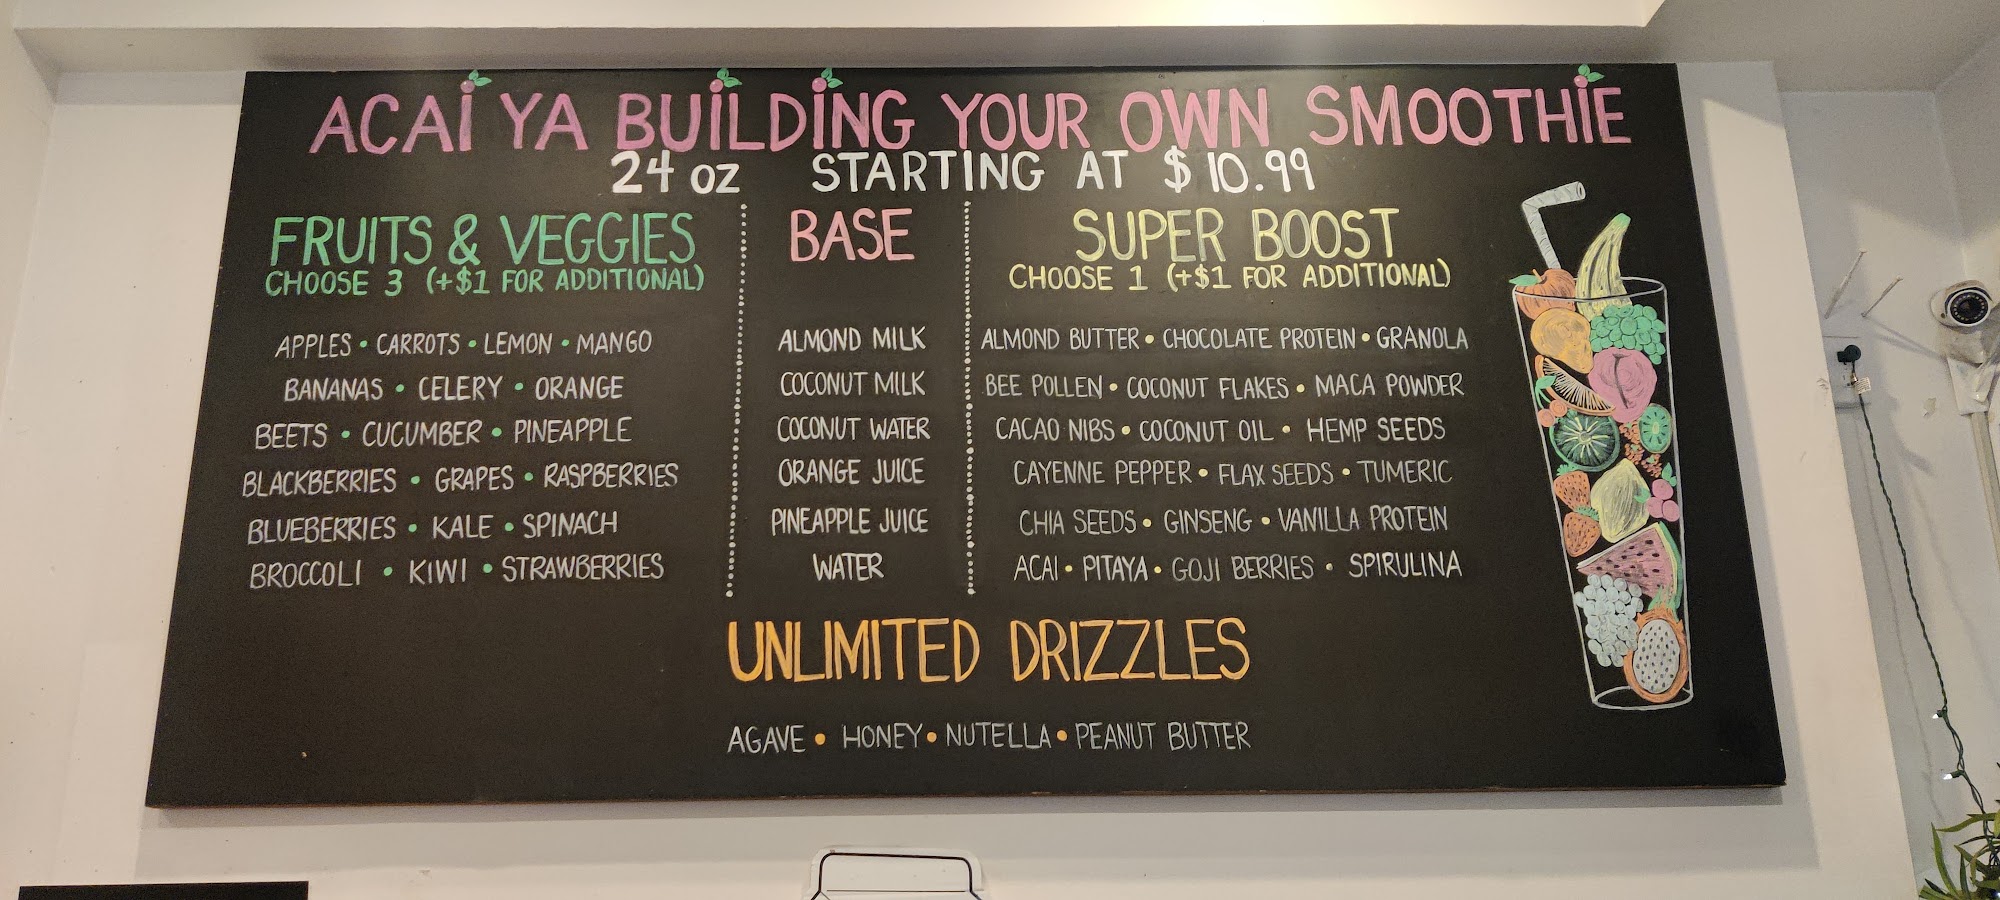 ACAI YA BUILDING YOUR OWN SMOOTHIE
24 OZ STARTING AT $10.99
FRUITS & VEGGIES
CHOOSE 3 (+$1 FOR ADDITIONAL)
APPLES • CARROTS • LEMON • MANGO
BANANAS • CELERY • ORANGE
BEETS • CUCUMBER • PINEAPPLE
BLACKBERRIES • GRAPES • RASPBERRIES
BLUEBERRIES • KALE • SPINACH
BROCCOLI • KIWI • STRAWBERRIES
BASE
ALMOND MILK
COCONUT MILK
COCONUT WATER
ORANGE JUICE
PINEAPPLE JUICE
WATER
SUPER BOOST
CHOOSE 1 (+$1 FOR ADDITIONAL)
ALMOND BUTTER • CHOCOLATE PROTEIN • GRANOLA
BEE POLLEN • COCONUT FLAKES • MACA POWDER
CACAO NIBS • COCONUT OIL • HEMP SEEDS
CAYENNE PEPPER • FLAX SEEDS • TUMERIC
CHIA SEEDS • GINSENG • VANILLA PROTEIN
ACAI • PITAYA • GOJI BERRIES • SPIRULINA
UNLIMITED DRIZZLES
AGAVE • HONEY • NUTELLA • PEANUT BUTTER